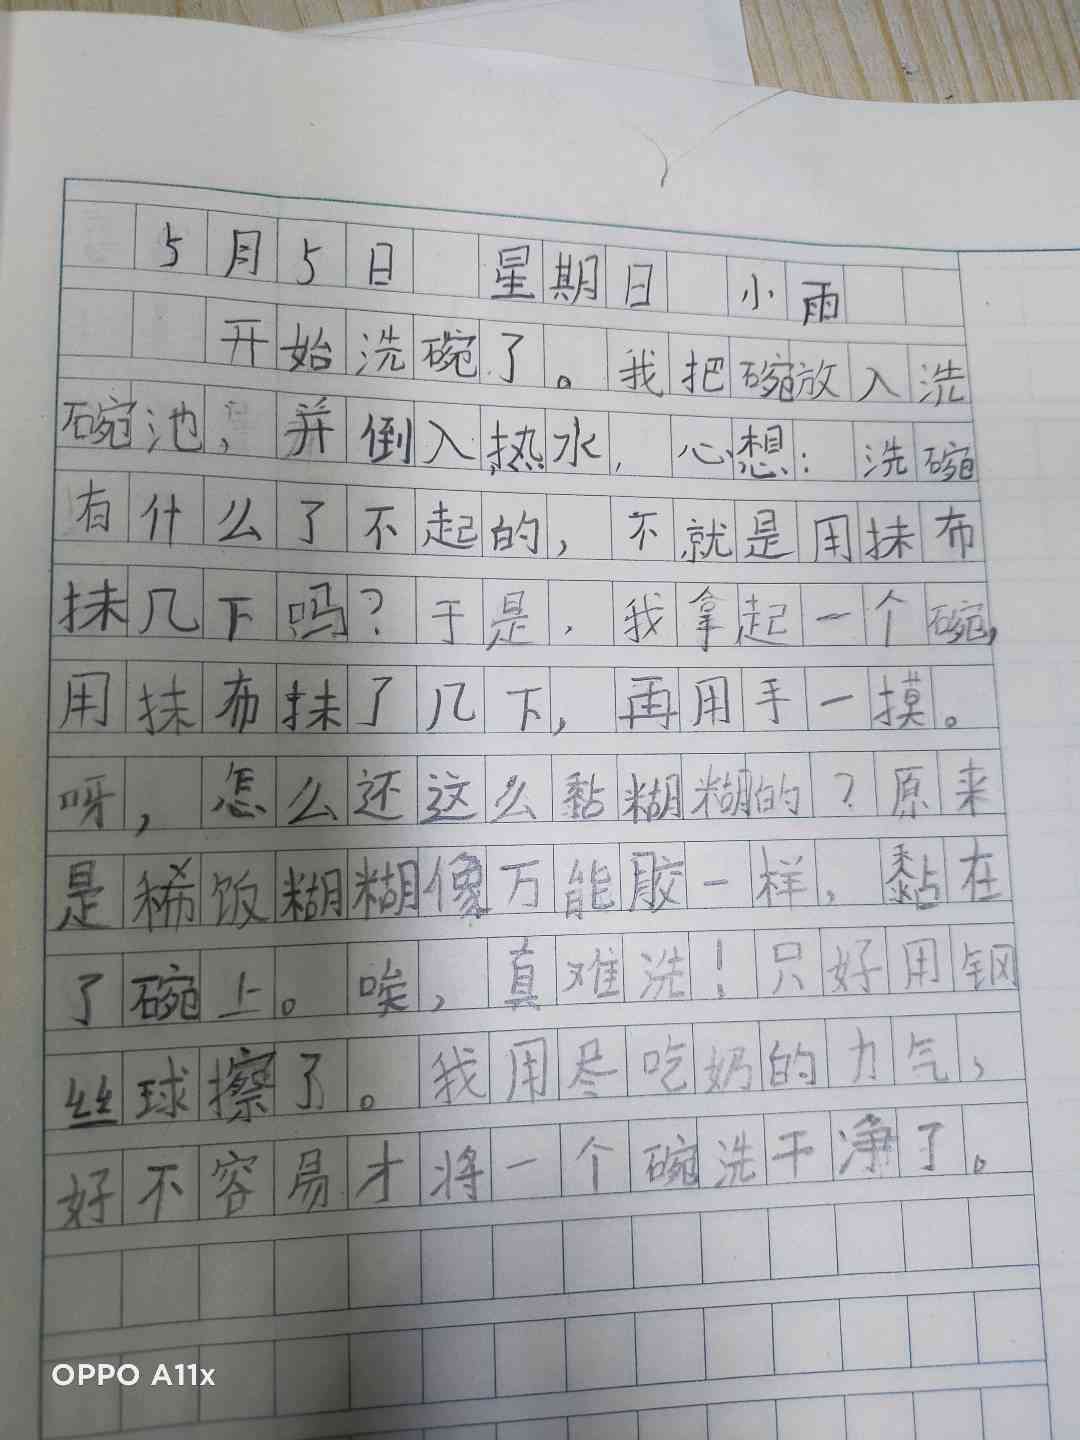 5月5日 星期日 小雨
开始洗碗了。我把碗放入洗
碗池，并倒入热水，心想：洗碗
有什么了不起的，不就是用抹布
抹几下吗？于是，我拿起一个碗，
用抹布抹了几下，再用手一摸。
呀，怎么还这么黏糊糊的？原来
是稀饭糊糊像万能胶一样，黏在
了碗上。唉，真难洗！只好用钢
丝球擦了。我用尽吃奶的力气，
好不容易才将一个碗洗干净了。
OPPO A11x